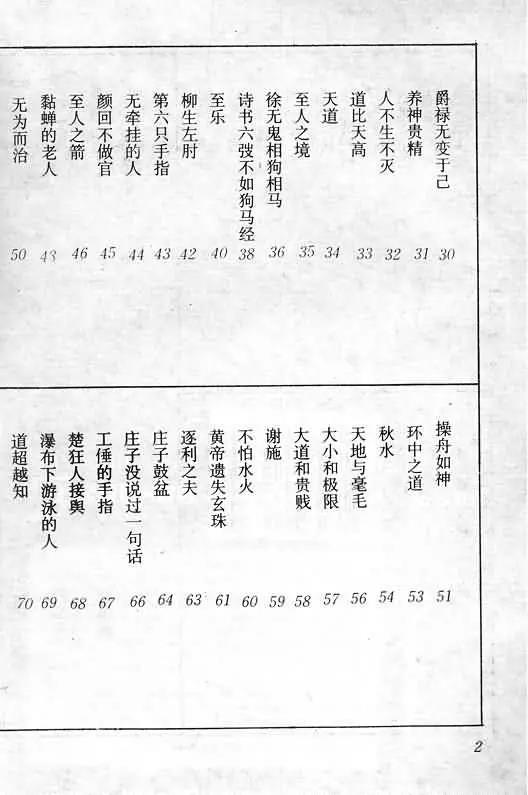 爵禄无变于己 30
养神贵精 31
人不生不灭 32
道比天高 33
天道 34
至人之境 35
徐无鬼相狗相马 36
诗书六弢不如狗马经 38
至乐 40
柳生左肘 42
第六只手指 43
无牵挂的人 44
颜回不做官 45
至人之箭 46
黏蝉的老人 48
无为而治 50
操舟如神 51
环中之道 53
秋水 54
天地与毫毛 56
大小和极限 57
大道和贵贱 58
谢施 59
不怕水火 60
黄帝遗失玄珠 61
逐利之夫 63
庄子鼓盆 64
庄子没说过一句话 66
工倕的手指 67
楚狂人接舆 68
瀑布下游泳的人 69
道超越知 70
2